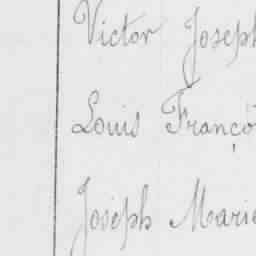 Victor Joseph
Louis Franço
Joseph Marie